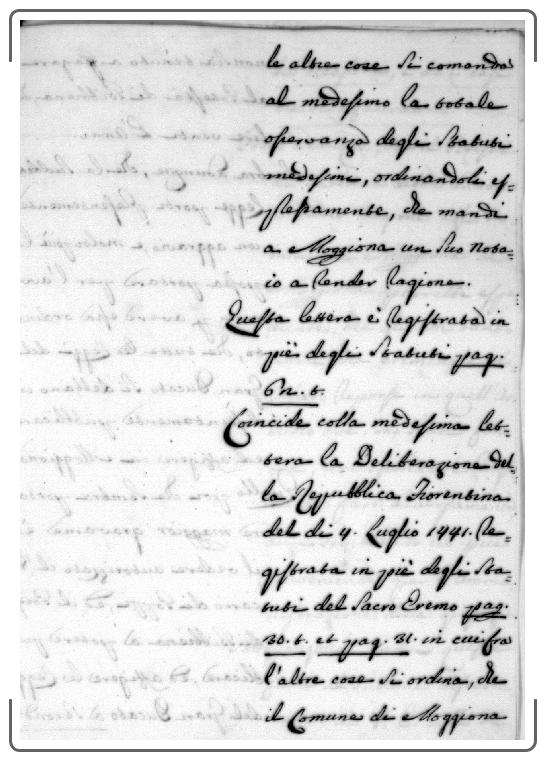 le altre cose si comanda
al medesimo la totale
osservanza degli Statuti
medesimi, ordinandoli es=
pressamente, che mandi
a Moggiona un suo Nota=
io a render ragione.
Questa lettera è registrata in
piè degli Statuti pag.
62. t.
Coincide colla medesima let=
tera la Deliberazione del=
la Reppubblica Fiorentina
del dì 4. Luglio 1441. Re=
gistrata in piè degli Sta=
tuti del Sacro Eremo pag.
30. t. et pag. 31. in cui fra
l'altre cose si ordina, che
il Comune di Moggiona